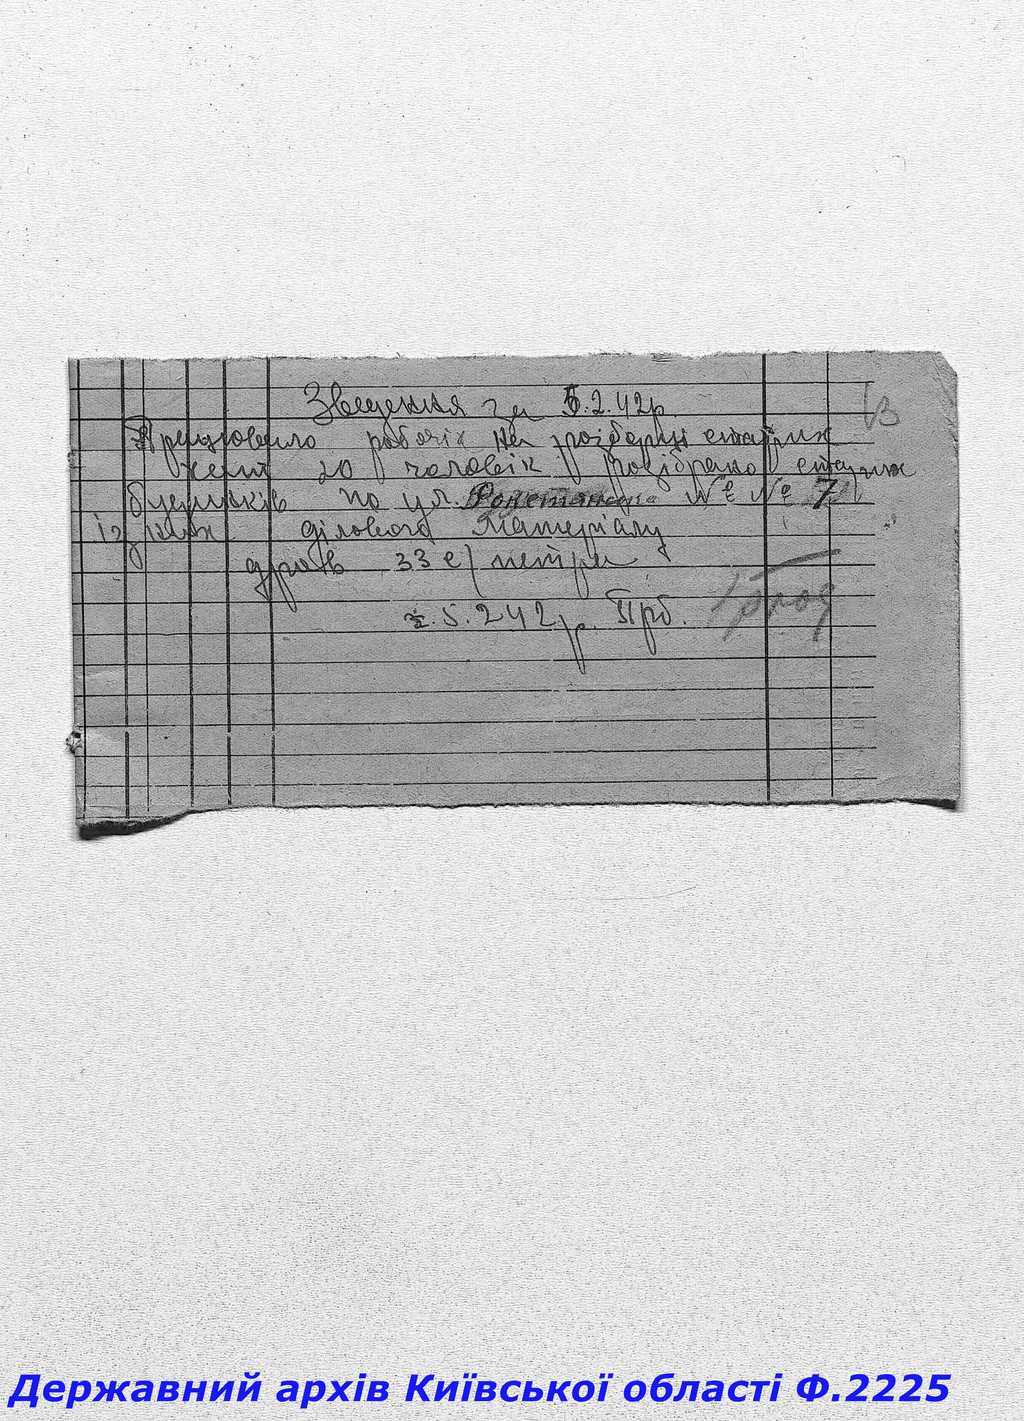 Зведення за 5.2.42р.
Працювало робочіх на розборці старих
хат 20 чоловік розібрано старих
будинків по ул. №№ 7
із них ділового матеріалу
дров 33 с/метри
5.2 42р.
Державний архів Київської області Ф.2225